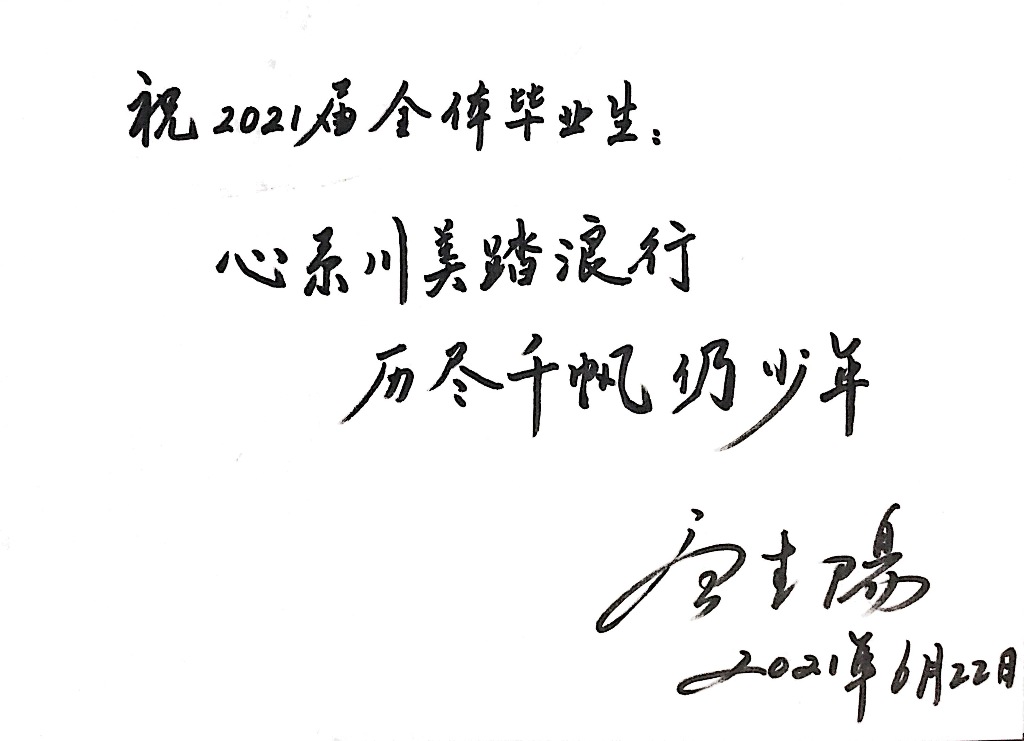 祝2021届全体毕业生：
心系川美踏浪行
历尽千帆仍少年
唐青陽
2021年6月22日